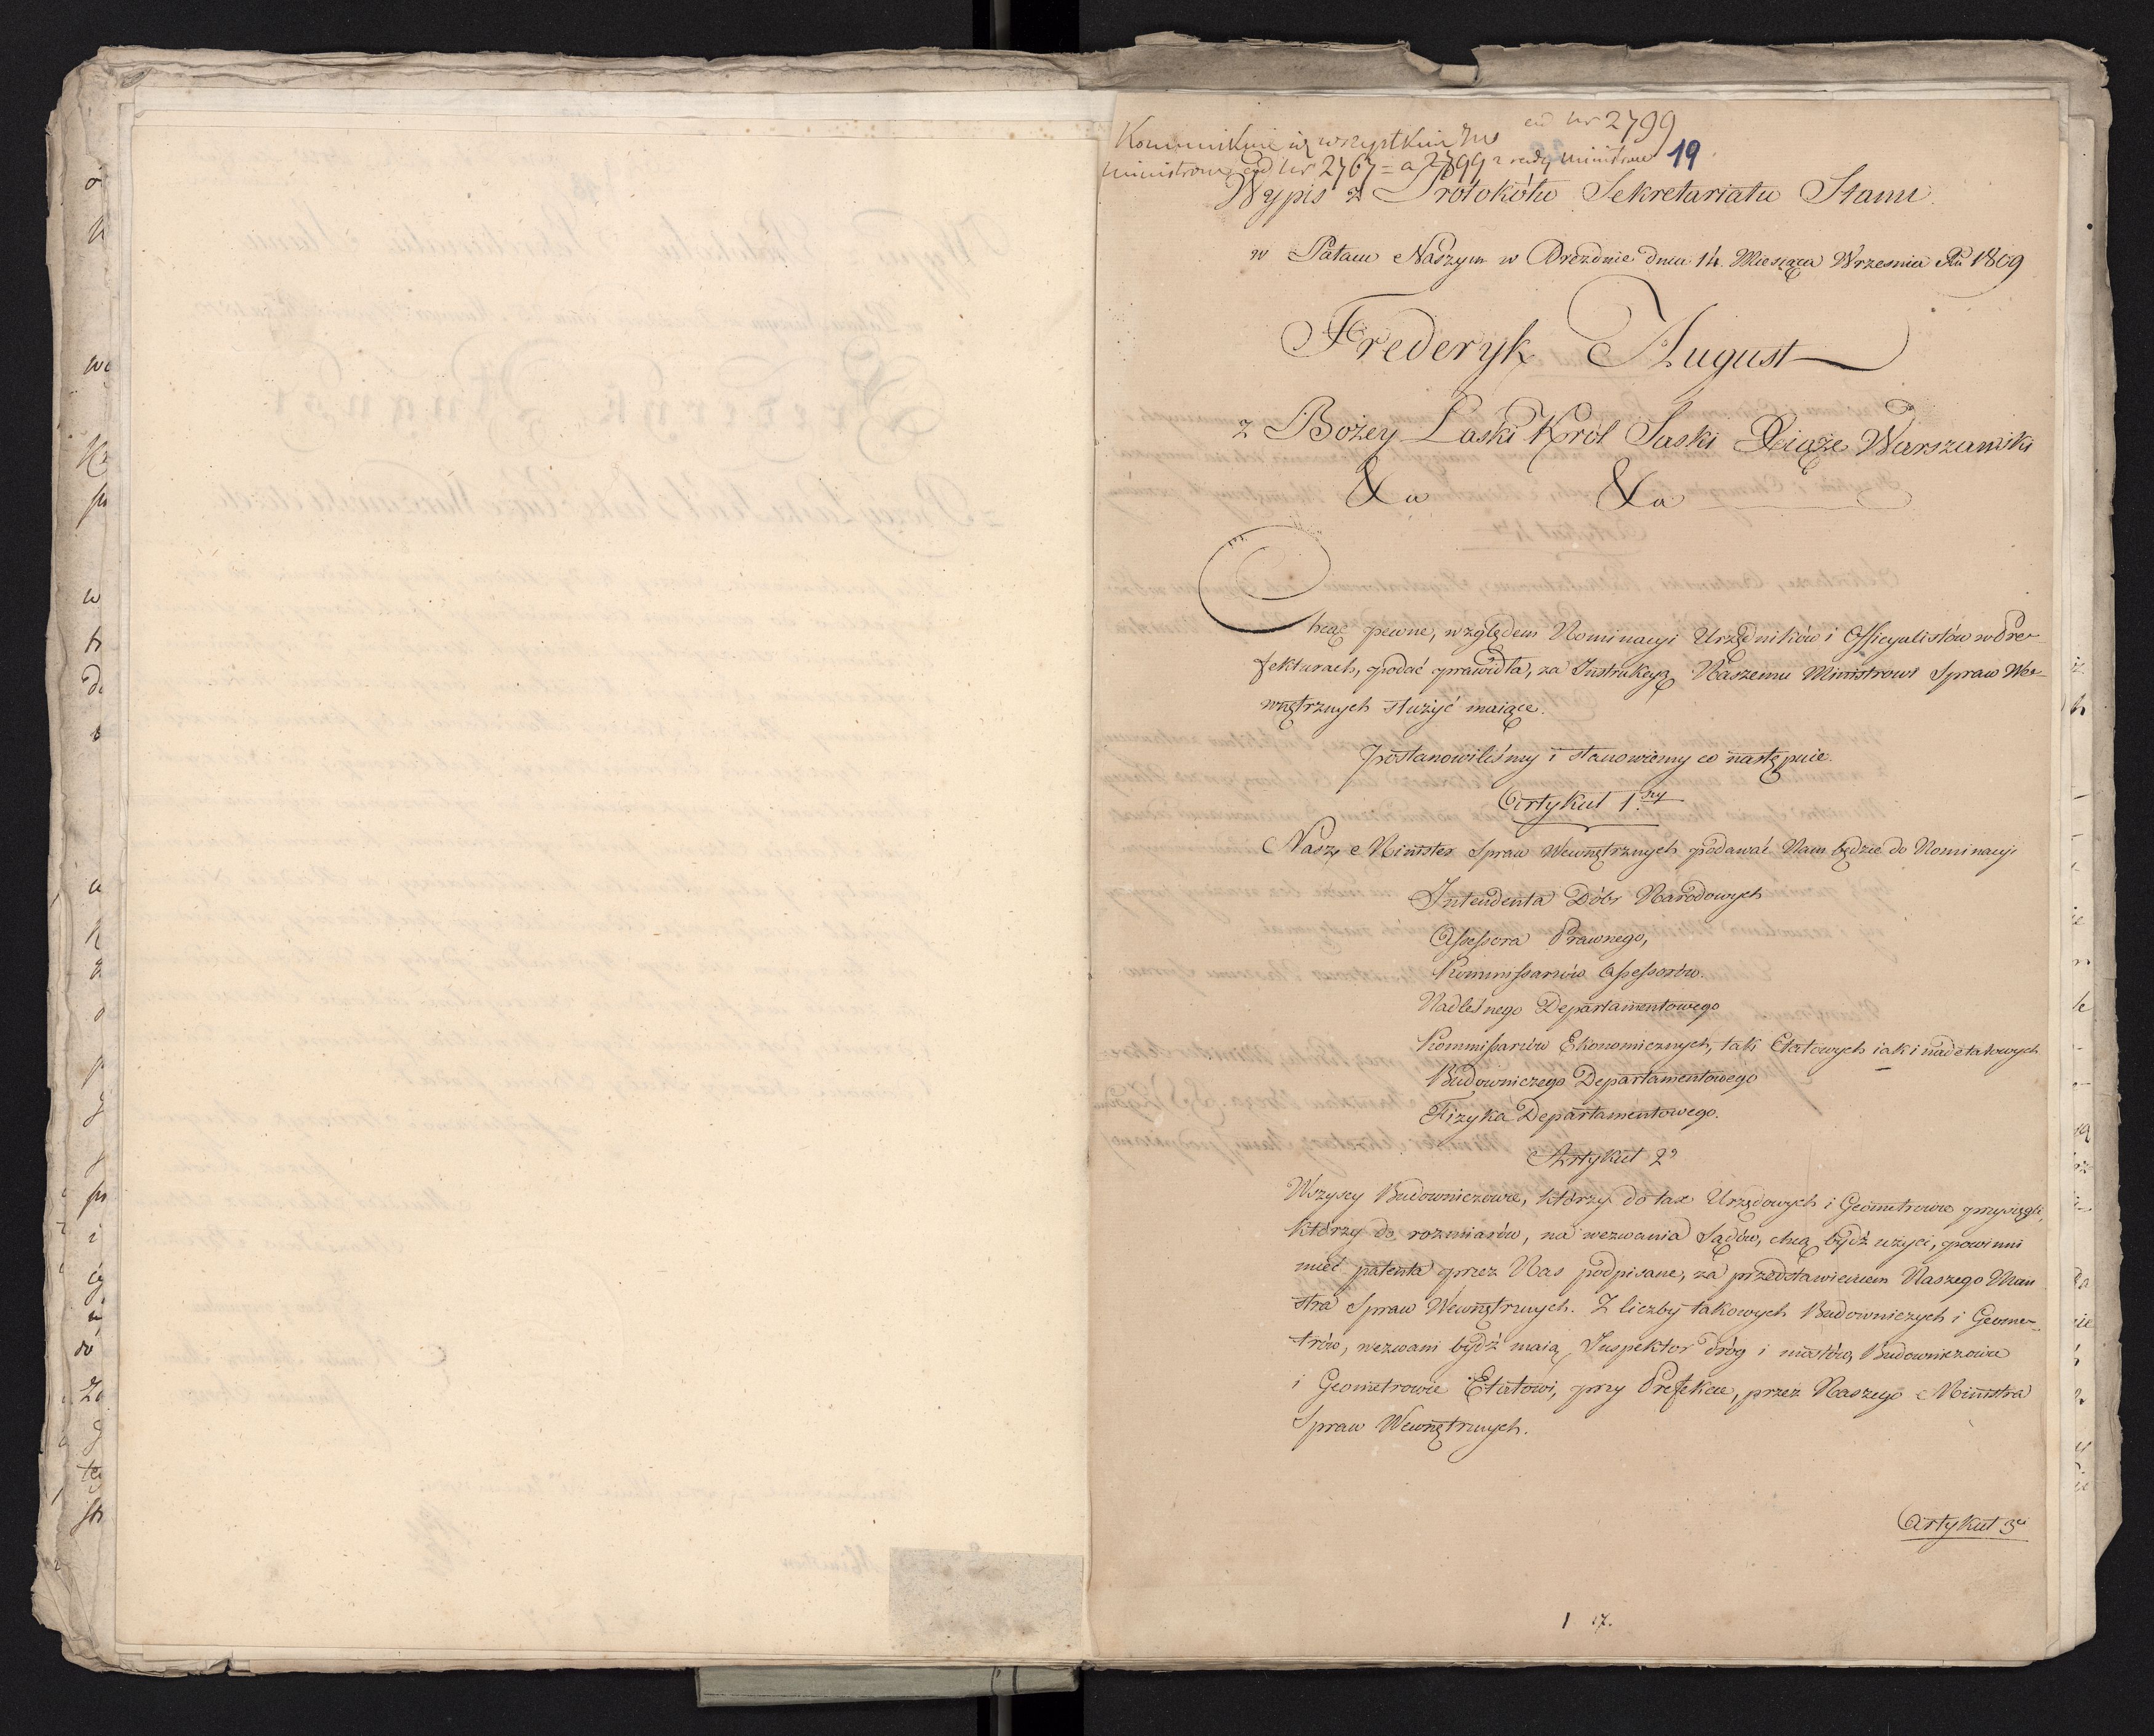 ad Nr 2799
Kommunikuie się wszystkim JW
Ministrom ad Nr 2767 = a 2799 z rady Ministrow 19
Wypis z Protokółu Sekretariatu Stanu
w Pałacu Naszym w Dreznie dnia 14. Miesiąca Wrzesnia Ru 1809
Frederyk August
z Bożey Łaski Król Saski Xiąże Warszawski
&a &a
Chcąc pewne, względem Nominacyi Urzędników i Officyalistów w Pre-
fekturach, podać prawidła, za Instrukcyą Naszemu Ministrowi Spraw We-
wnętrznych służyć maiące.
postanowiliśmy i stanowiemy co następuie.
Artykuł 1.szy
Nasz Minister Spraw Wewnętrznych podawać Nam będzie do Nominacyi
Intendenta Dóbr Narodowych
Assessora Prawnego,
Kommissarzów Assessorów.
Nadleśnego Departamentowego
Kommissarzów Ekonomicznych, tak Etatowych iak i nadetatowych
Budowniczego Departamentowego
Fizyka Departamentowego.
Artykuł 2o
Wszyscy Budowniczowie, którzy do tax Urzędowych i Geometrowie przysięgli,
którzy do rozmiarów, na wezwania Sądów, chcą bydź użyci, powinni
mieć patenta przez Nas podpisane, za przedstawieniem Naszego Mini
stra Spraw Wewnętrznych. Z liczby takowych Budowniczych i Geome-
trów, wezwani bydź maią, Inspektor dróg i mostów, Budowniczowie
i Geometrowie Etatowi, przy Prefekcie, przez Naszego Ministra
Spraw Wewnętrznych.
Artykuł 3ci
1 17.